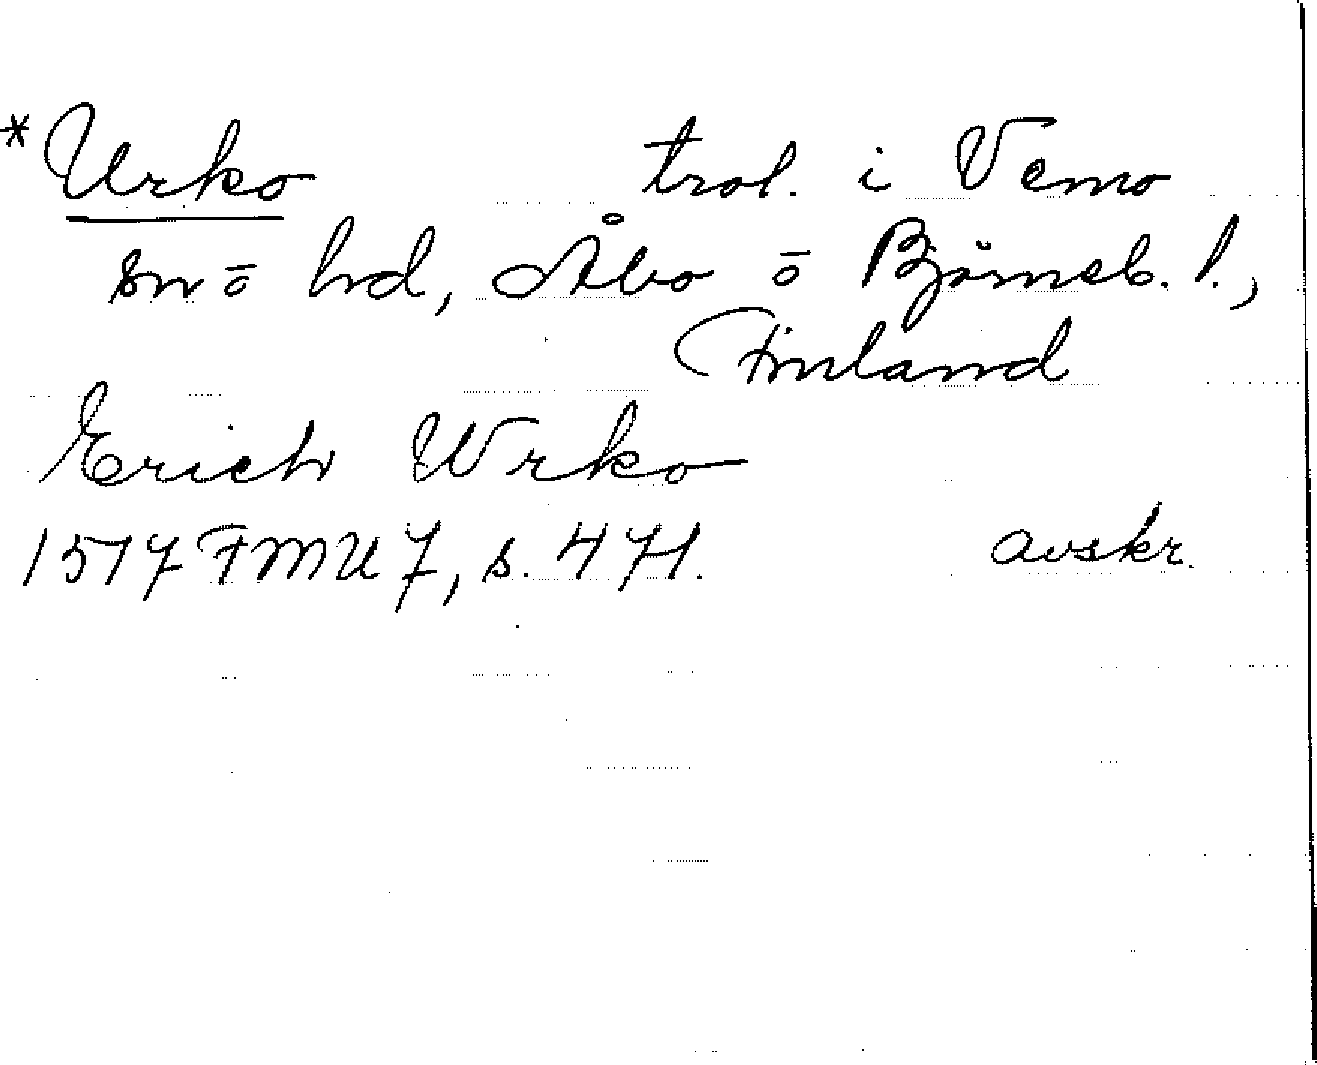 *Urko trol. i Vemo
sn ō hd, Åbo ō Björneb. l.,
Finland
Erich Wrko
1517 FMU 7, s. 471. avskr.